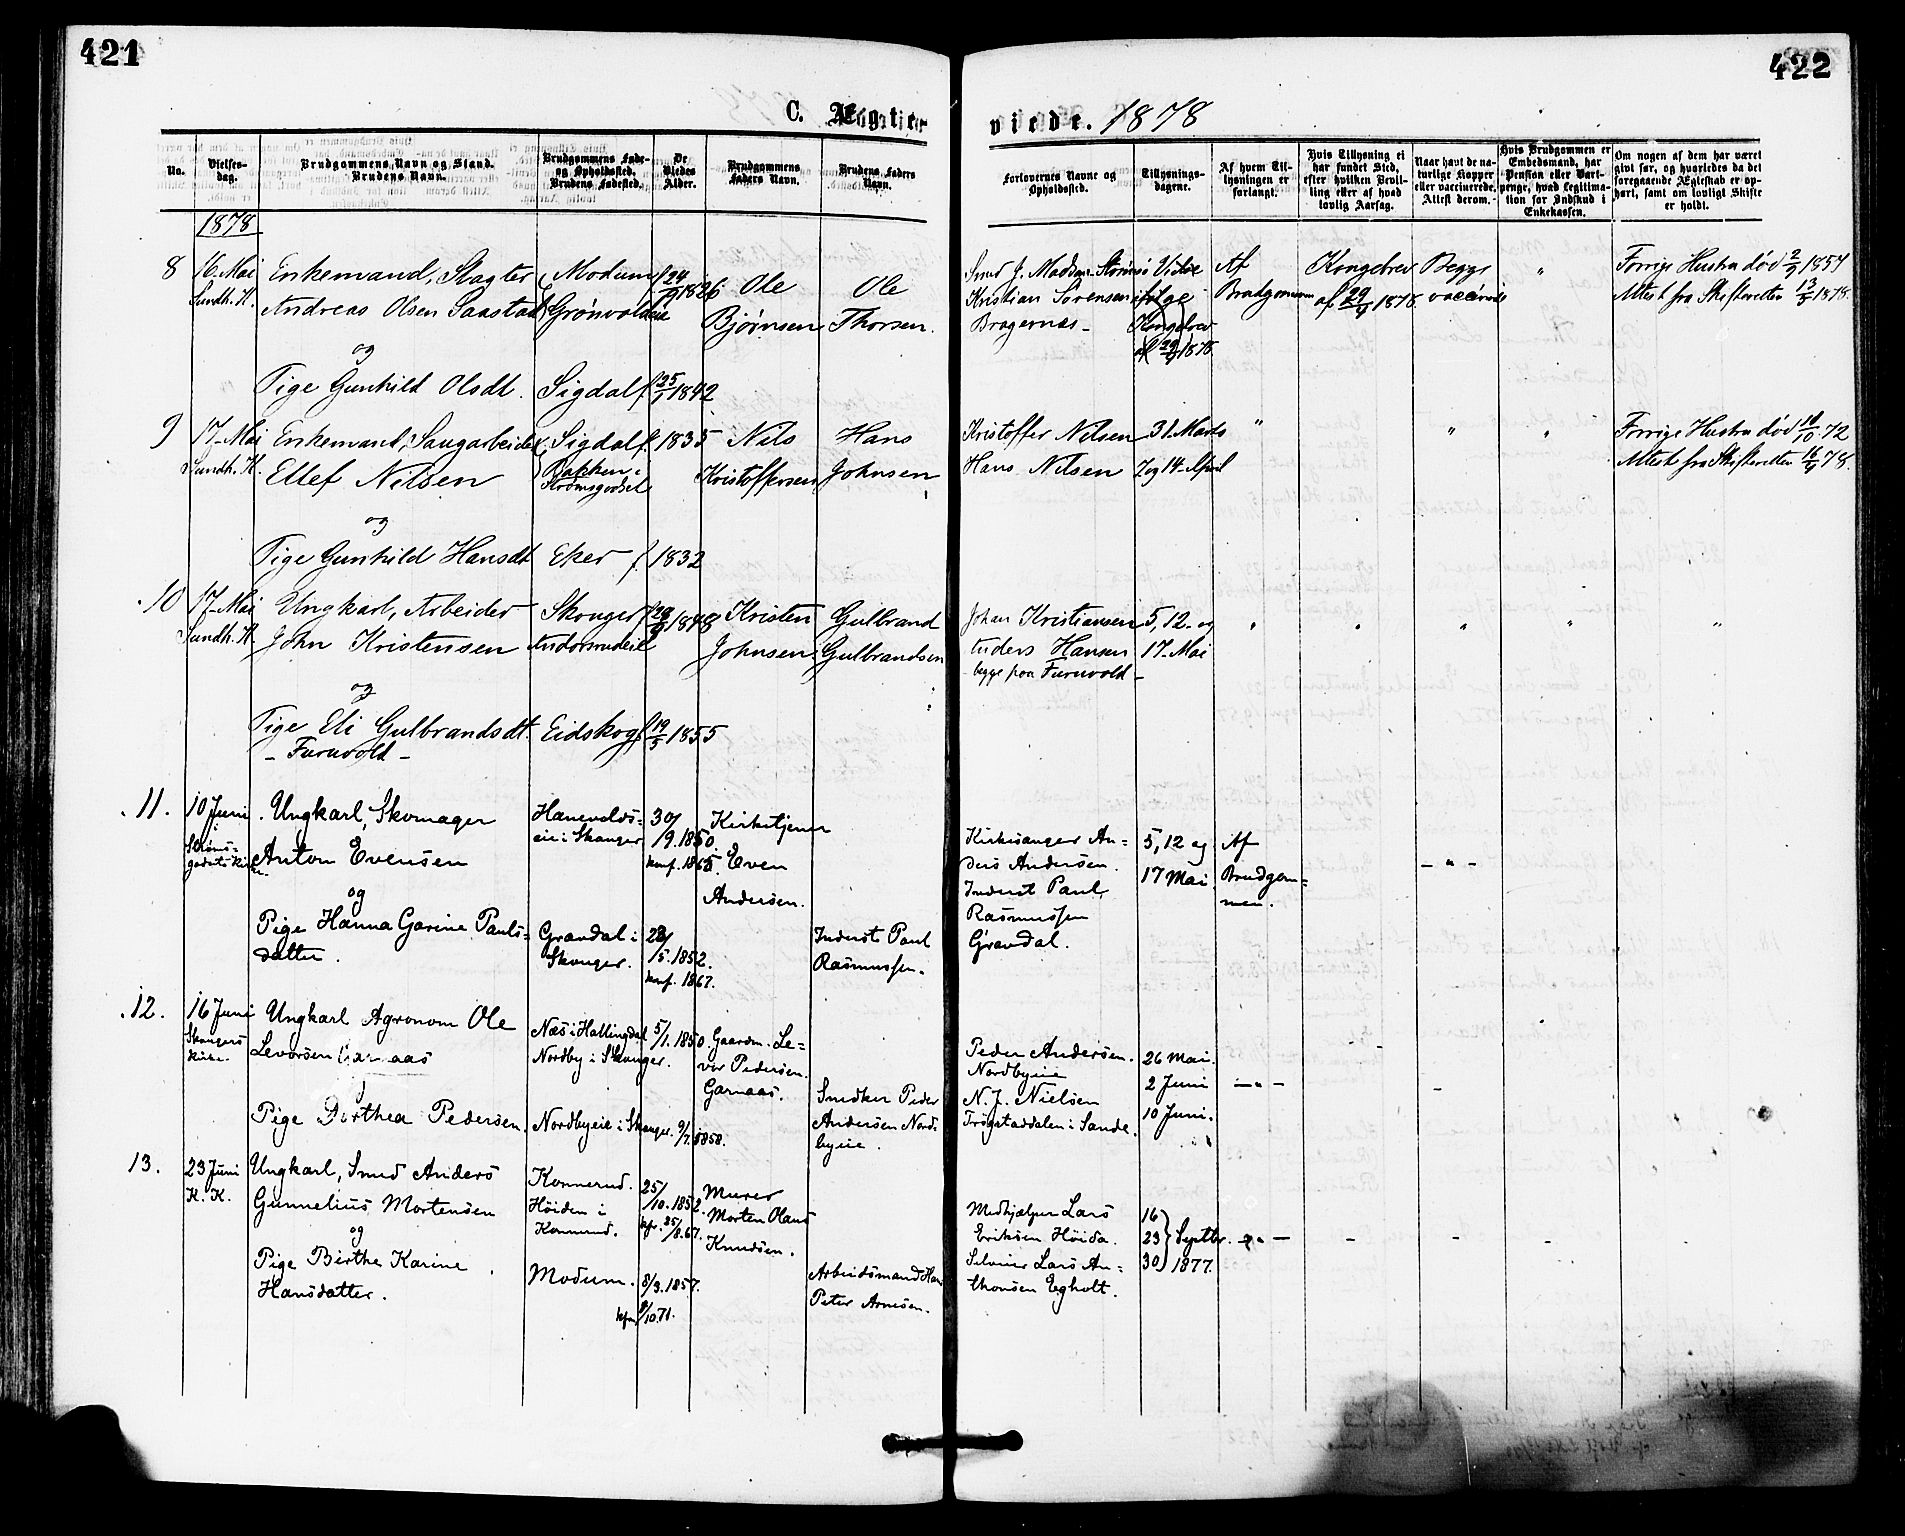 421
422
C. Ægte-
viede. 1878
No.
Vielses-
dag.
Brudgommens Navn og Stand.
Brudens Navn.
Brudgommens Føde-
og Opholdssted.
Brudens Fødested.
De
Viedes
Alder.
Brudgommens
Faders Navn.
Brudens Faders
Navn.
Forlovernes Navne og
Opholdssted.
Tillysnings-
dagene.
Af hvem Til-
lysningen er
forlangt.
Hvis Tillysning ei
har fundet Sted,
efter hvilken Bevil-
ling eller af hvad
lovlig Aarsag.
Naar havt de na-
turlige Kopper
eller vaccinerede.
Attest derom.
Hvis Brudgommen er
Embedsmand, har
Pension eller Vart-
penge, hvad Legitima-
tion for Indskud i
Enkekassen.
Om nogen af dem har været
givt før, og hvorledes da det
foregaaende Ægteskab er op-
hørt, samt om lovligt Skifte
er holdt.
1878
8
16. Mai
Sundh. K.
Enkemand, Slagter
Andreas Olsen Saastad
og
Pige Gunhild Olsdt.
Modum
Grønvoldeie
Sigdal
f. 24/9 1826
f. 25/1 1842
Ole
Bjørnsen
Ole
Thorsen.
Smed J. Madsen Strømsø
Kristian Sørensen
Bragernæs
Viede
ifølge
Kongebrev
af 29/4 1878
Af
Brudgommen
Kongebrev
af 29/4 1878.
Begge
vaccinerede
"
Forrige Hustru død 2/9 1857
Attest fra Skifteretten 13/5 1878.
9
17. Mai
Sundh. K.
Enkemand, Saugarbeider
Ellef Nilsen
og
Pige Gunhild Hansdt
Sigdal
Bakken i
Strømsgodset
Eker
f. 1835
f. 1832
Nils
Kristoffersen
Hans
Johnsen
Kristoffer Nilsen
Hans Nilsen
31. Marts
7 og 14. April
"
"
"
Forrige Hustru død 14/10 72
Attest fra Skifteretten 16/4 78.
10
17. Mai
Sundh. K.
Ungkarl, Arbeider
John Kristensen
og
Pige Eli Gulbrandsdt.
- Furuvold -
Skouger
Andorsrudeie
Eidskog
f. 29/9 1848
f. 19/5 1855
Kristen
Johnsen
Gulbrand
Gulbrandsen
Johan Kristiansen
Anders Hansen
begge paa Furuvold -
5, 12. og
17. Mai
"
"
"
"
"
11.
10 Juni
i
Strøms-
godsets Kirke.
Ungkarl, Skomager
Anton Evensen
og
Pige Hanna Garine Pauls-
datter.
Hanevolds-
eie i Skouger
Gravdal i
Skouger.
30/9. 1850.
konf. 1865.
28/5. 1852.
konf. 1867.
Kirketjener
Even
Andersen.
Inderst Paul
Rasmussen.
Kirkesanger An-
ders Andersen.
Inderst Paul
Rasmussen
Gravdal.
5, 12 og
17 Mai
Af
Brudgom-
men.
- " -
12.
16 Juni
Skougers
Kirke.
Ungkarl Agronom Ole
Levorsen Garnaas
Pige Dorthea Pedersen.
Næs i Hallingdal
Nordby i Skouger.
Nordbyeie i Skouger.
5/1. 1850.
9/7. 1858.
Gaardm. Le-
vor Pedersen
Garnaas.
Snedker Peder
Andersen Nord-
byeie.
Peder Andersen.
Nordbyeie
N. J. Nielsen
Trøgstaddalen i Sande.
26 Mai.
2 Juni
10 Juni.
- " -
13.
23 Juni
K. K.
Ungkarl, Smed Anders
Gunnelius Mortensen
og
Pige Birthe Karine
Hansdatter.
Konnerud.
Høiden i
Konnerud.
Modum.
25/10. 1852.
kfr. 25/8. 67.
8/3. 1857.
8/10. 71.
Murer
Morten Olaus
Knudsen.
Arbeidsmand Hans
Peter Arnesen.
Medhjælper Lars
Eriksen Høida.
Selveier Lars An-
thonsen Egholt.
16
23
30
Septbr.
1877.
- " -
-
-
-